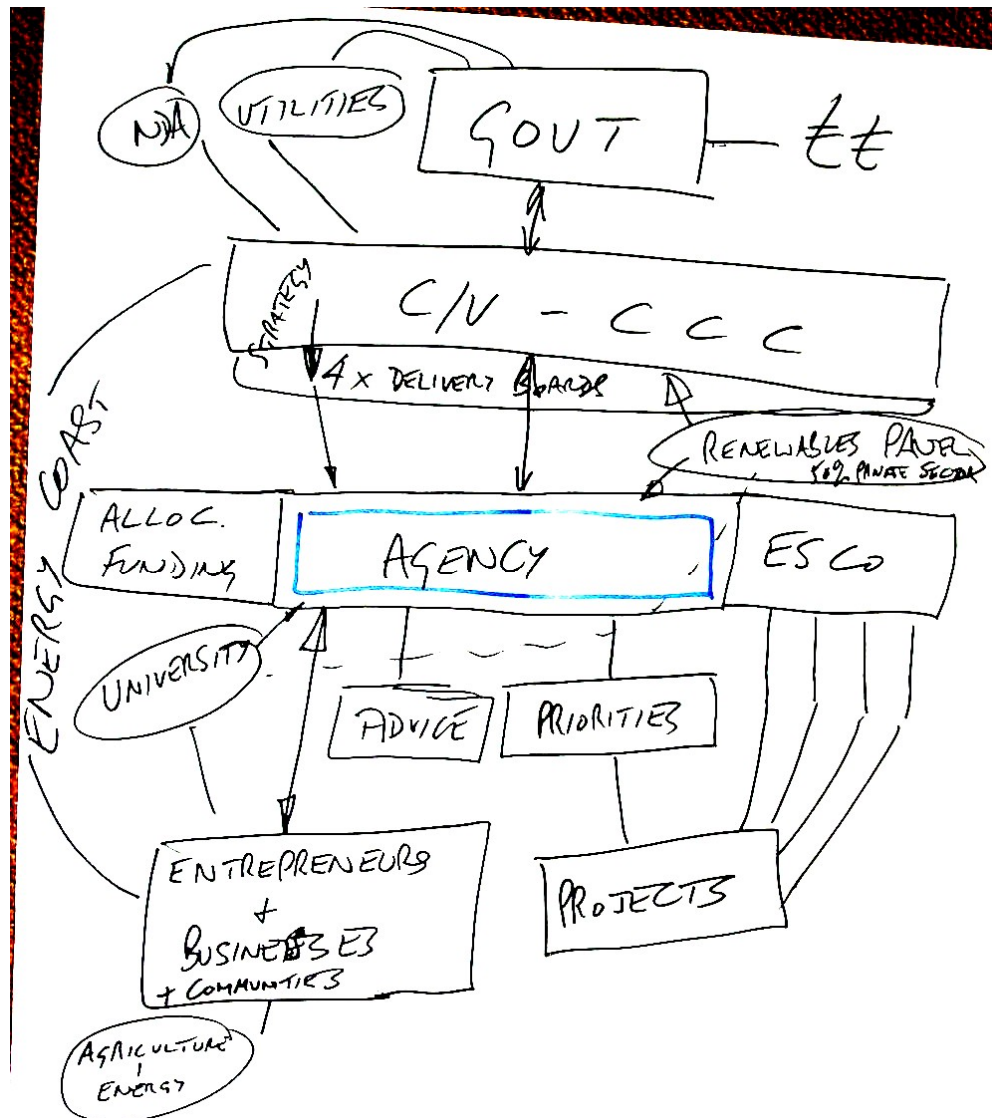 NDA
UTILITIES
GOVT
££
STRATEGY
C/V - CCC
4 x DELIVERY BOARDS
RENEWABLES PANEL
50% PRIVATE SECTOR
ENERGY COAST
ALLOC.
FUNDING
AGENCY
ESCO
UNIVERSITY
ADVICE
PRIORITIES
ENTREPRENEURS
+
BUSINESSES
+ COMMUNITIES
PROJECTS
AGRICULTURE
ENERGY